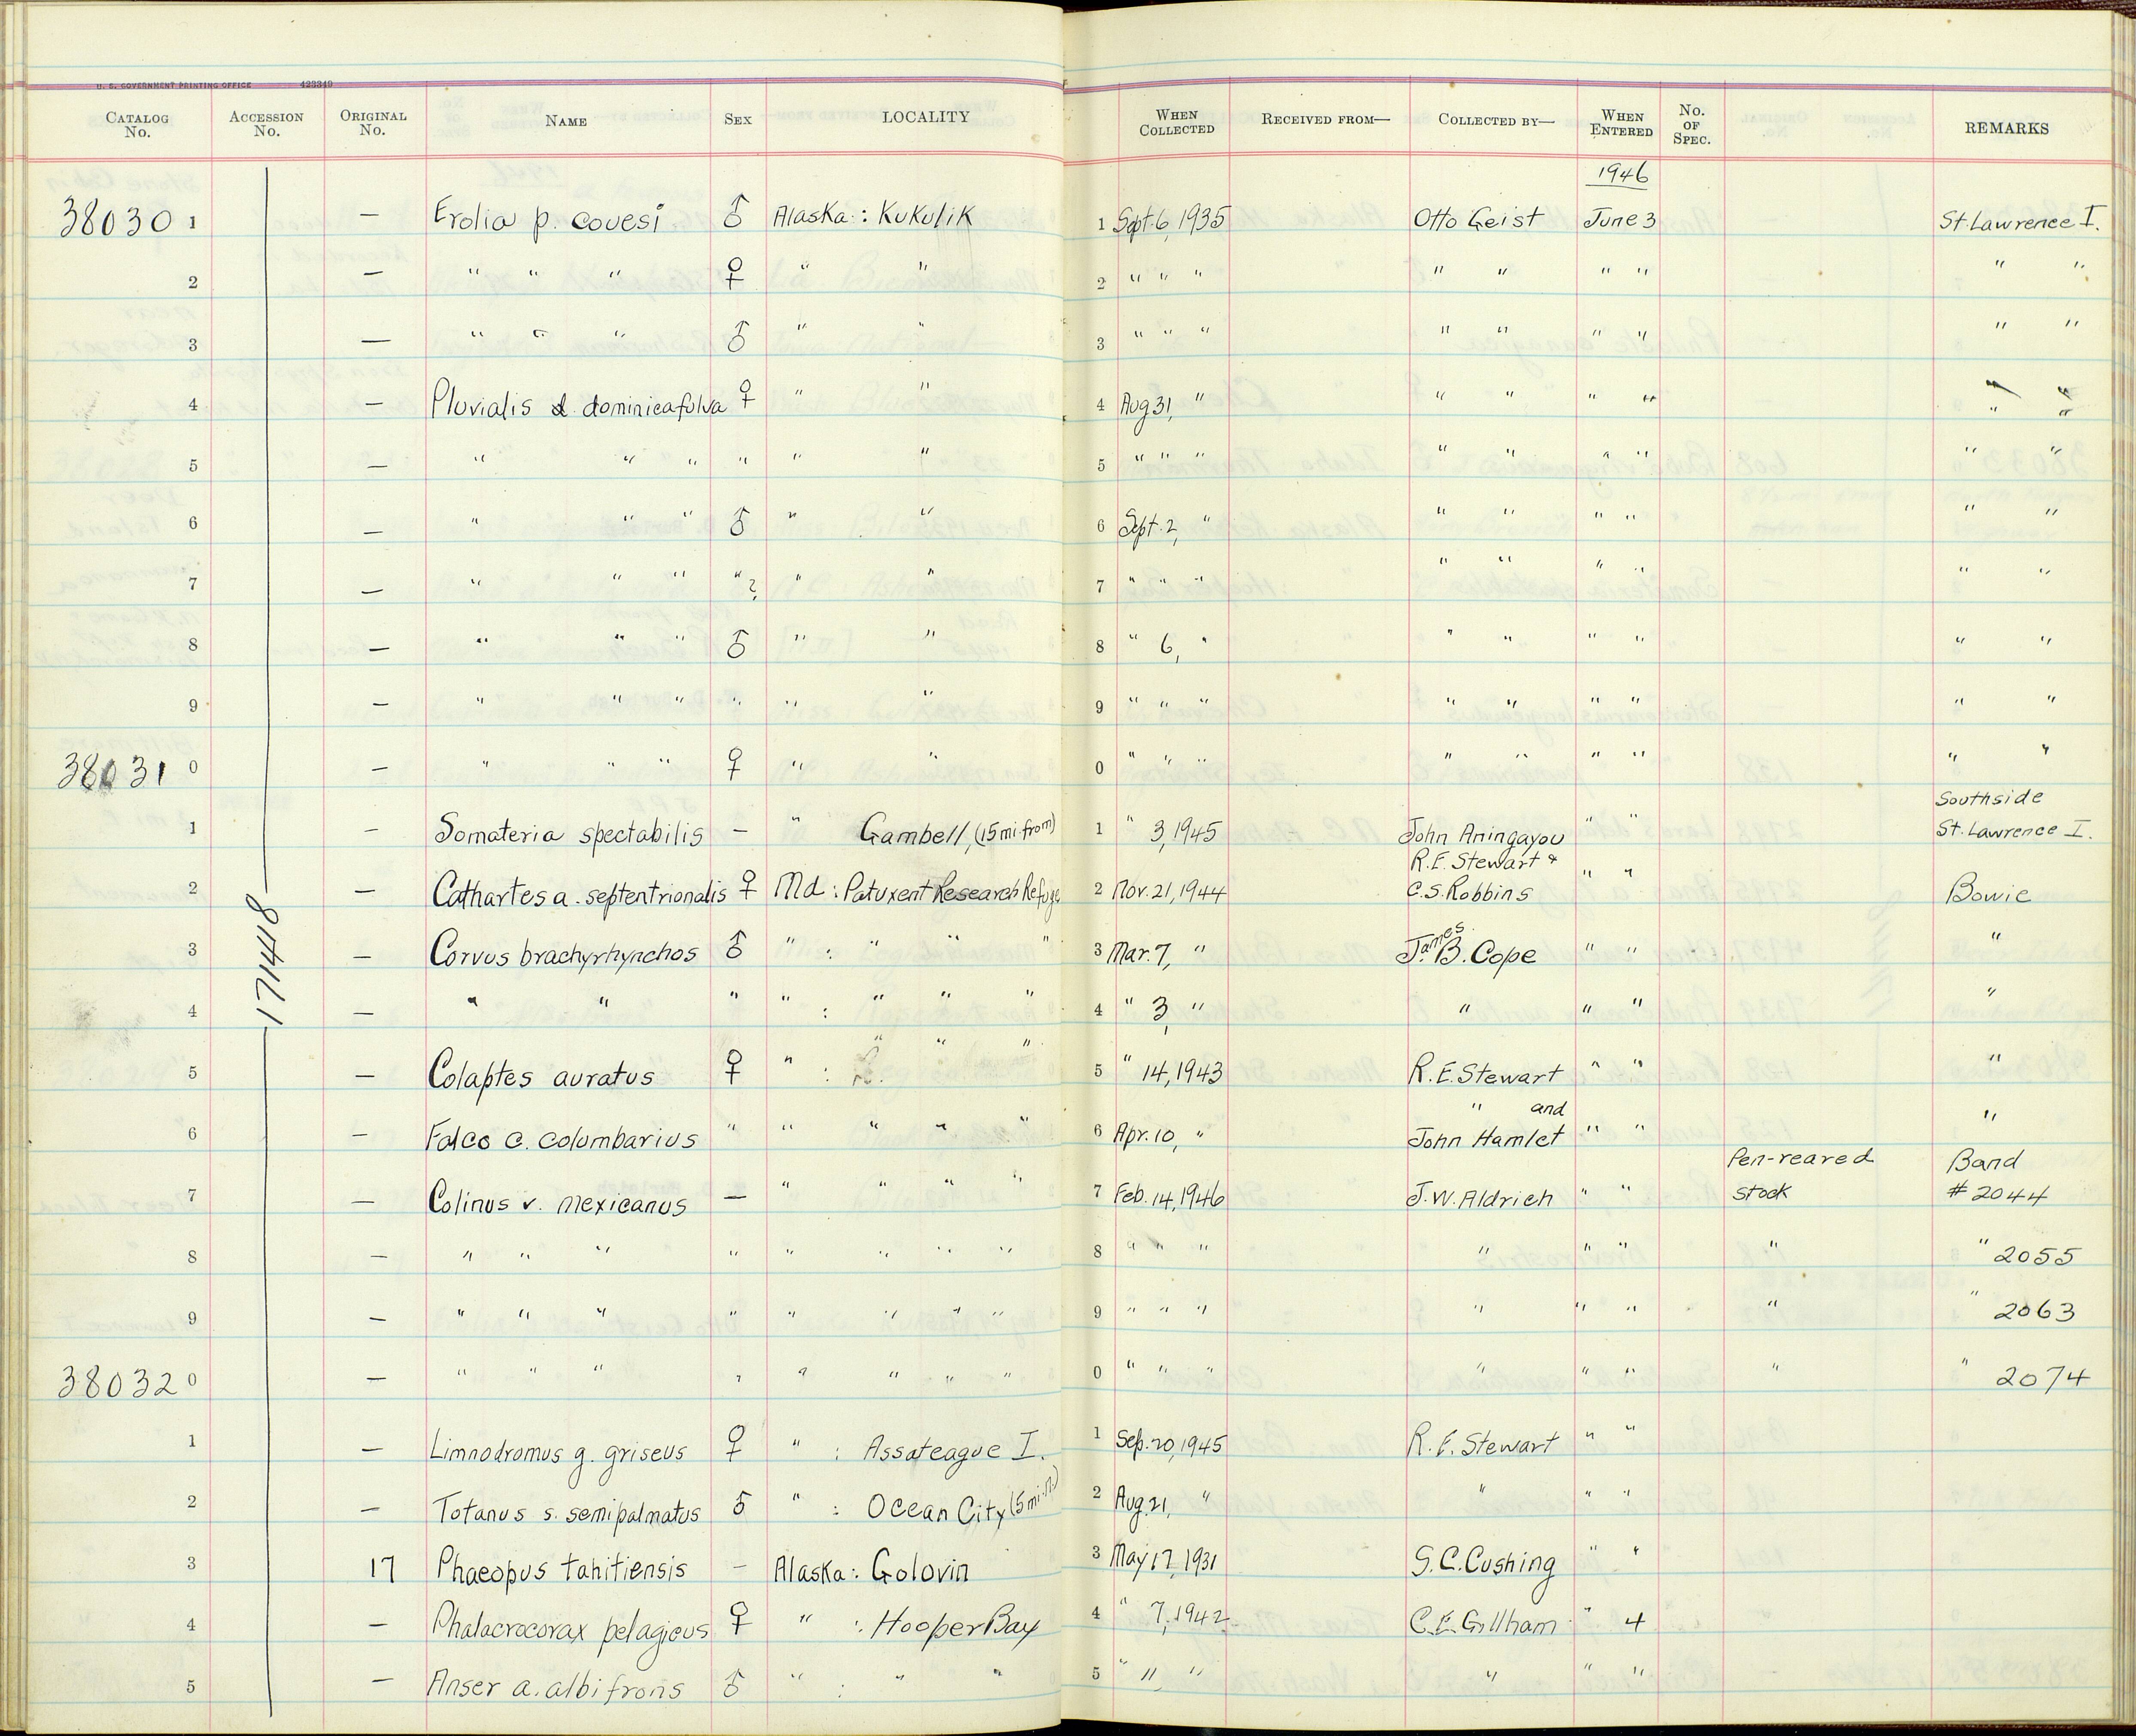 U. S. GOVERNMENT PRINTING OFFICE 423349
CATALOG No. ACCESSION No. ORIGINAL No. NAME SEX LOCALITY WHEN COLLECTED RECEIVED FROM— COLLECTED BY— WHEN ENTERED No. OF SPEC. REMARKS
1946
38030 1 — Erolia p. couesi ♂ Alaska : Kukulik 1 Sept. 6, 1935 Otto Geist June 3 St. Lawrence I.
2 — " " " ♀ " " 2 " " " " " " " " "
3 — " " " ♂ " " 3 " " " " " " " " "
4 — Pluvialis d. dominica fulva ♀ " " 4 Aug 31, " " " " " " "
5 — " " " " " " 5 " " " " " " " " "
6 — " " " ♂ " " 6 Sept. 2, " " " " " " "
7 — " " " " ? " " 7 " " " " " " " " "
8 — " " " ♂ " " 8 " 6, " " " " " " "
9 — " " " " " " 9 " " " " " " " " "
38031 0 — " " " ♀ " " 0 " " " " " " " " "
Southside
1 — Somateria spectabilis — " Gambell, (15 mi. from) 1 " 3, 1945 John Aningayou " " St. Lawrence I.
R.E. Stewart &
2 — Cathartes a. septentrionalis ♀ Md : Patuxent Research Refuge 2 Nov. 21, 1944 C.S. Robbins " " Bowie
171418
3 — Corvus brachyrhynchos ♂ " : " " " 3 Mar. 7, " James B. Cope " " "
4 — " " " " : " " " 4 " 3, " " " " "
5 — Colaptes auratus ♀ " : " " " 5 " 14, 1943 R.E. Stewart " " "
" and
6 — Falco c. columbarius " " " " " 6 Apr. 10, " John Hamlet " " "
Pen-reared Band
7 — Colinus v. mexicanus — " " " " 7 Feb. 14, 1946 J.W. Aldrich " " stock # 2044
8 — " " " " " " " " 8 " " " " " " " " 2055
9 — " " " " " " " " 9 " " " " " " " " 2063
38032 0 — " " " " " " " " 0 " " " " " " " " 2074
1 — Limnodromus g. griseus ♀ " : Assateague I. 1 Sep. 20, 1945 R.E. Stewart " "
2 — Totanus s. semipalmatus ♂ " : Ocean City (5 mi. n.) 2 Aug. 21, " " " "
3 17 Phaeopus tahitiensis — Alaska : Golovin 3 May 17, 1931 S.C. Cushing " "
4 — Phalacrocorax pelagicus ♀ " : Hooper Bay 4 " 7, 1942 C.E. Gillham " 4
5 — Anser a. albifrons ♂ " : " " 5 " 11, " " " "